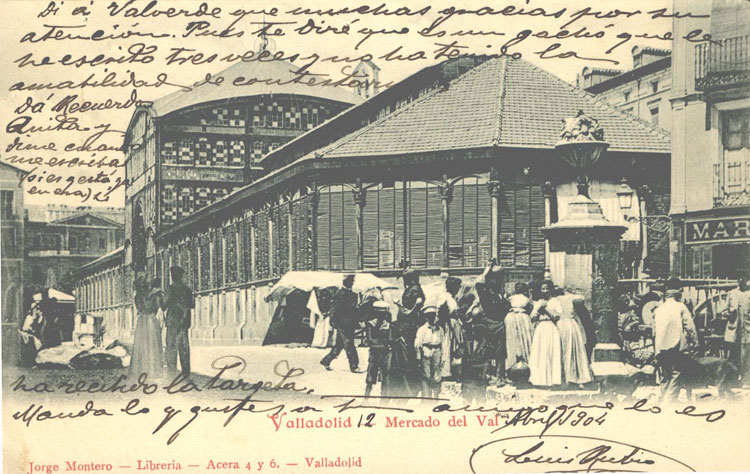 Di á Valverde que muchas gracias por su
atención. Pues te diré que es un gachó que le
he escrito tres veces y no ha tenido la
amabilidad de contestar
Dá Recuerdos
Anita y
dime cuando
me escribas
si es gesta
en era) is
MAR
ha recibido la Targeta.
Manda lo que gustes a tu amigo que lo es
Valladolid 12 Mercado del Val Abril 1904
Luis Rubio
Jorge Montero — Libreria — Acera 4 y 6. — Valladolid